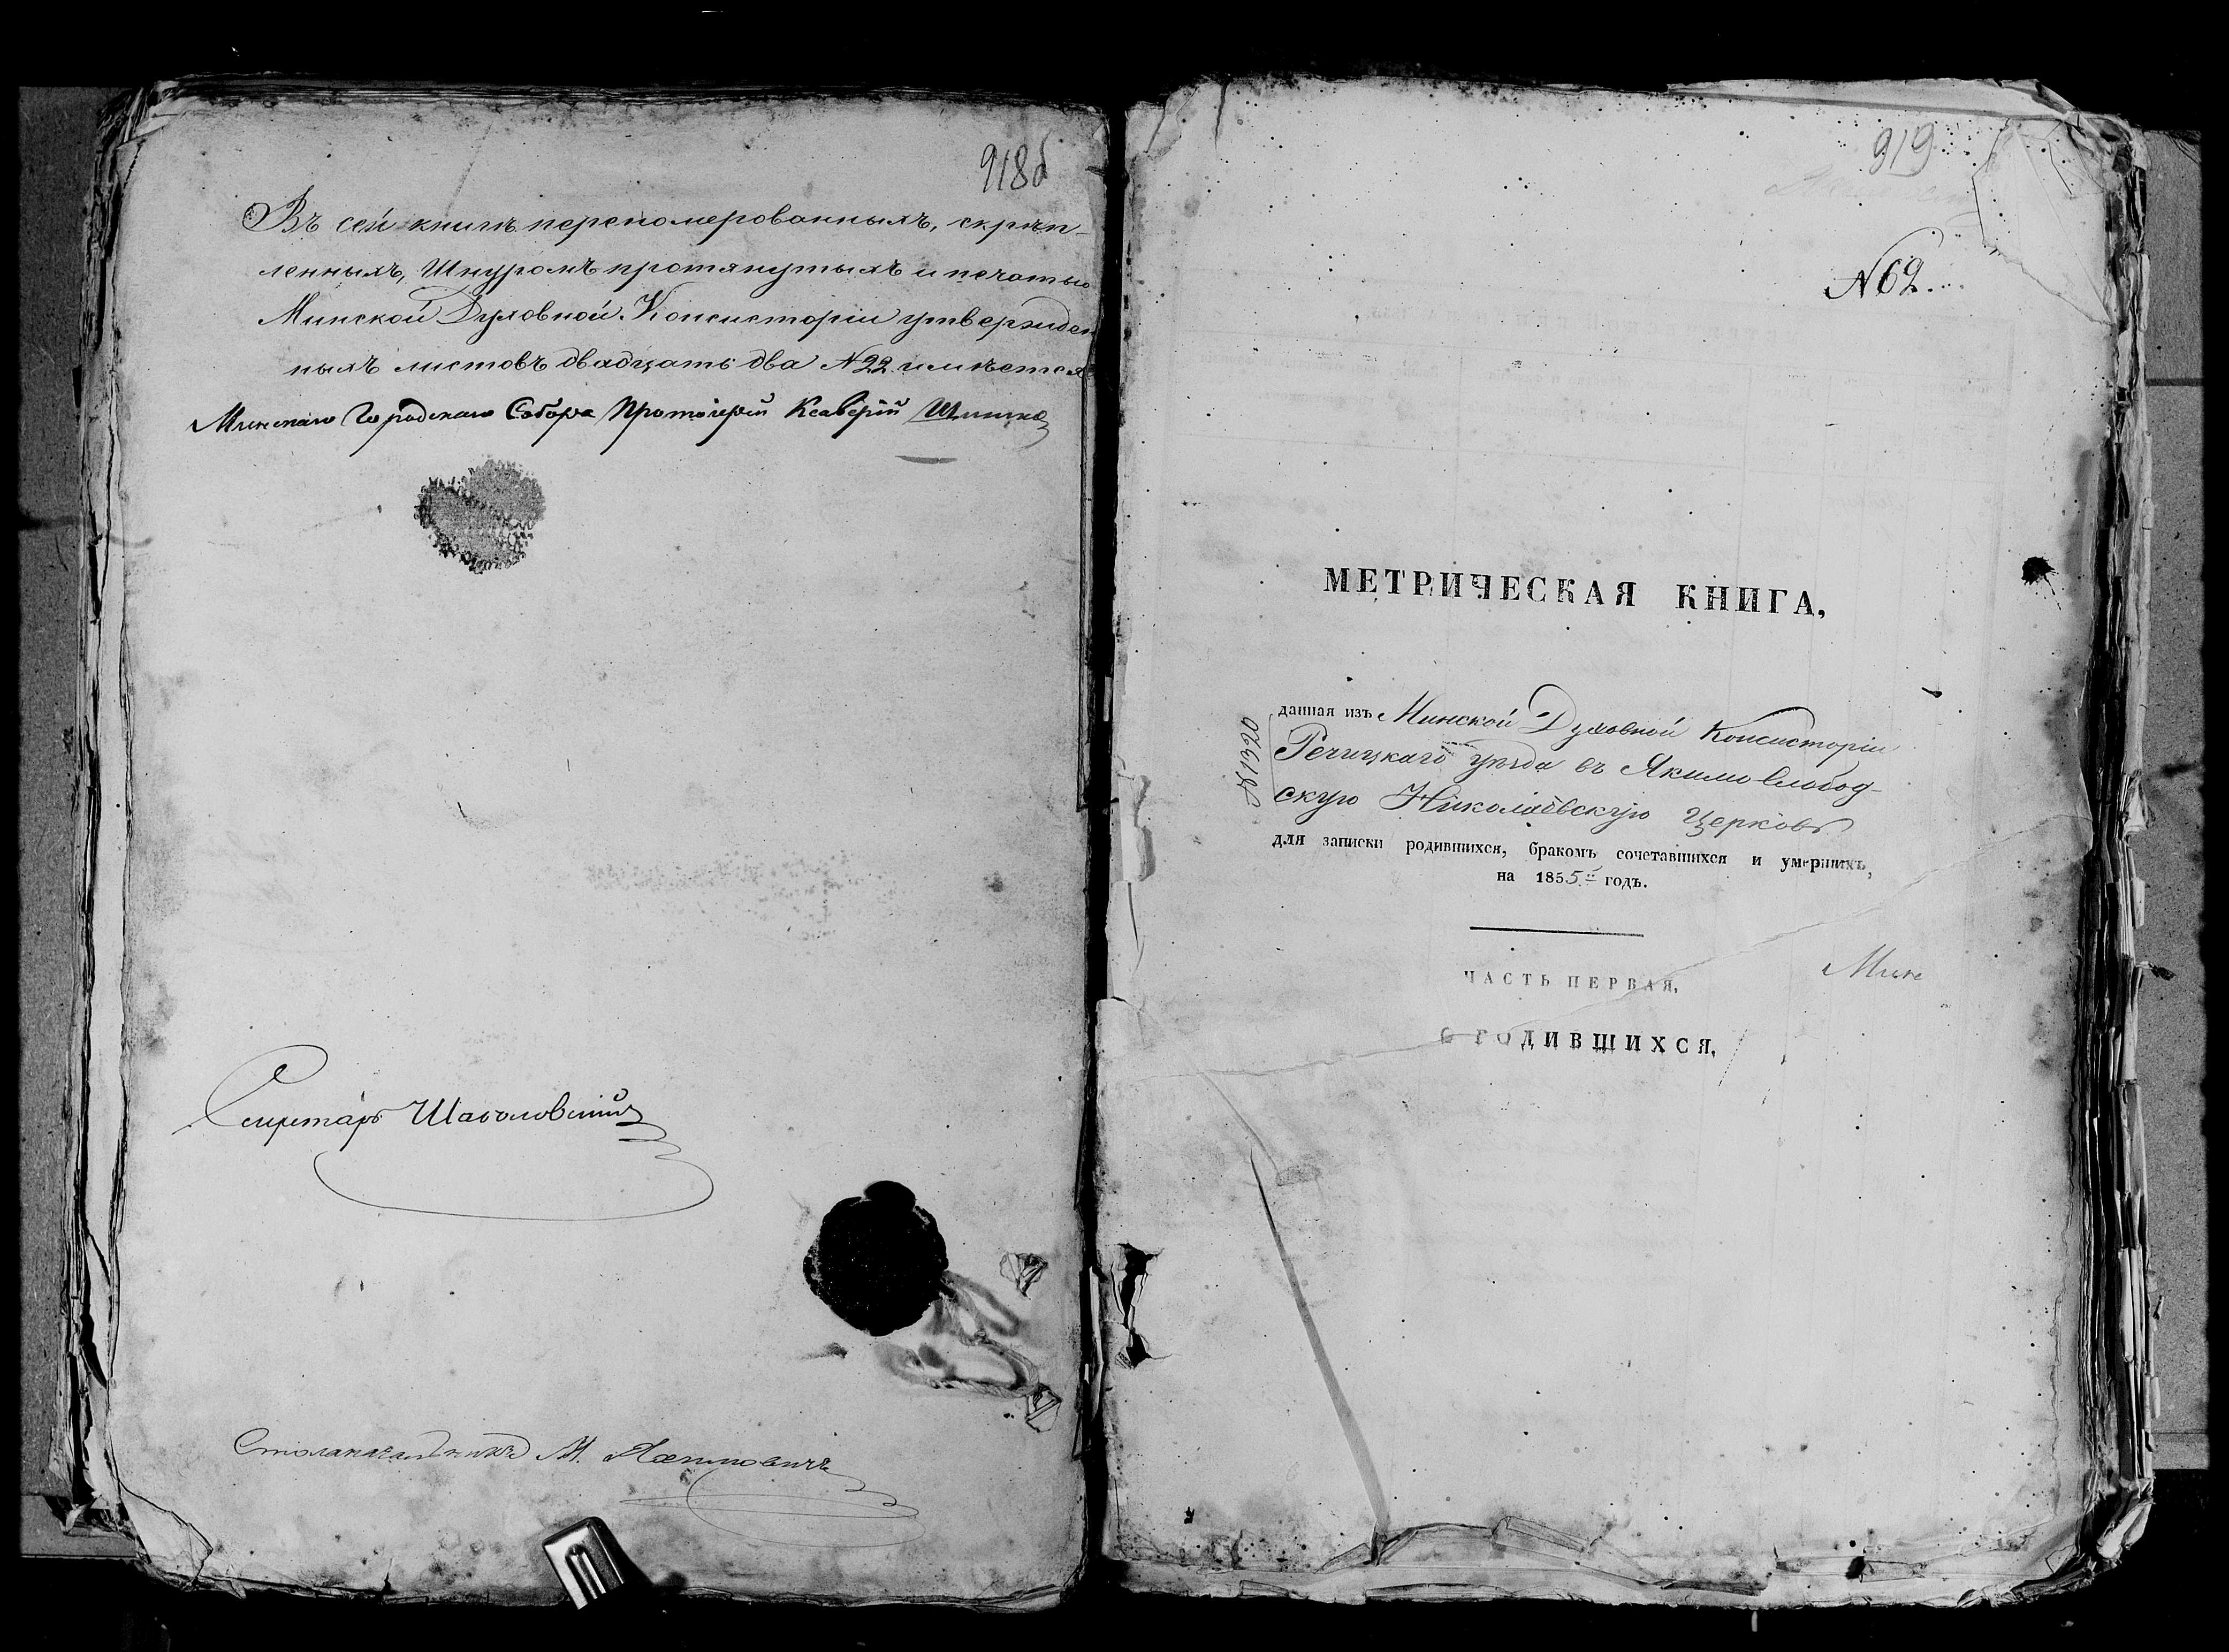 918б
Въ сей книгѣ перепомерованныхъ, скрѣп-
ленныхъ, Шнуромъ протянутыхъ и печатью
Минской Духовной Консисторіи утвержден
ныхъ листовъ двадцать два №22 имѣется
Минскаго Городскаго Собора Протоіерей Ксаверій
Секретарь
Столоначальникъ М.
919
№62.
МЕТРИЧЕСКАЯ КНИГА,
№1320
данная изъ Минской Духовной Консисторіи
Речицкаго уѣзда въ Якимо Слобод-
скую Николаевскую Церковь
для записки родившихся, бракомъ сочетавшихся и умершихъ,
на 1855й годъ.
ЧАСТЬ ПЕРВАЯ,
Минс
О РОДИВШИХСЯ,